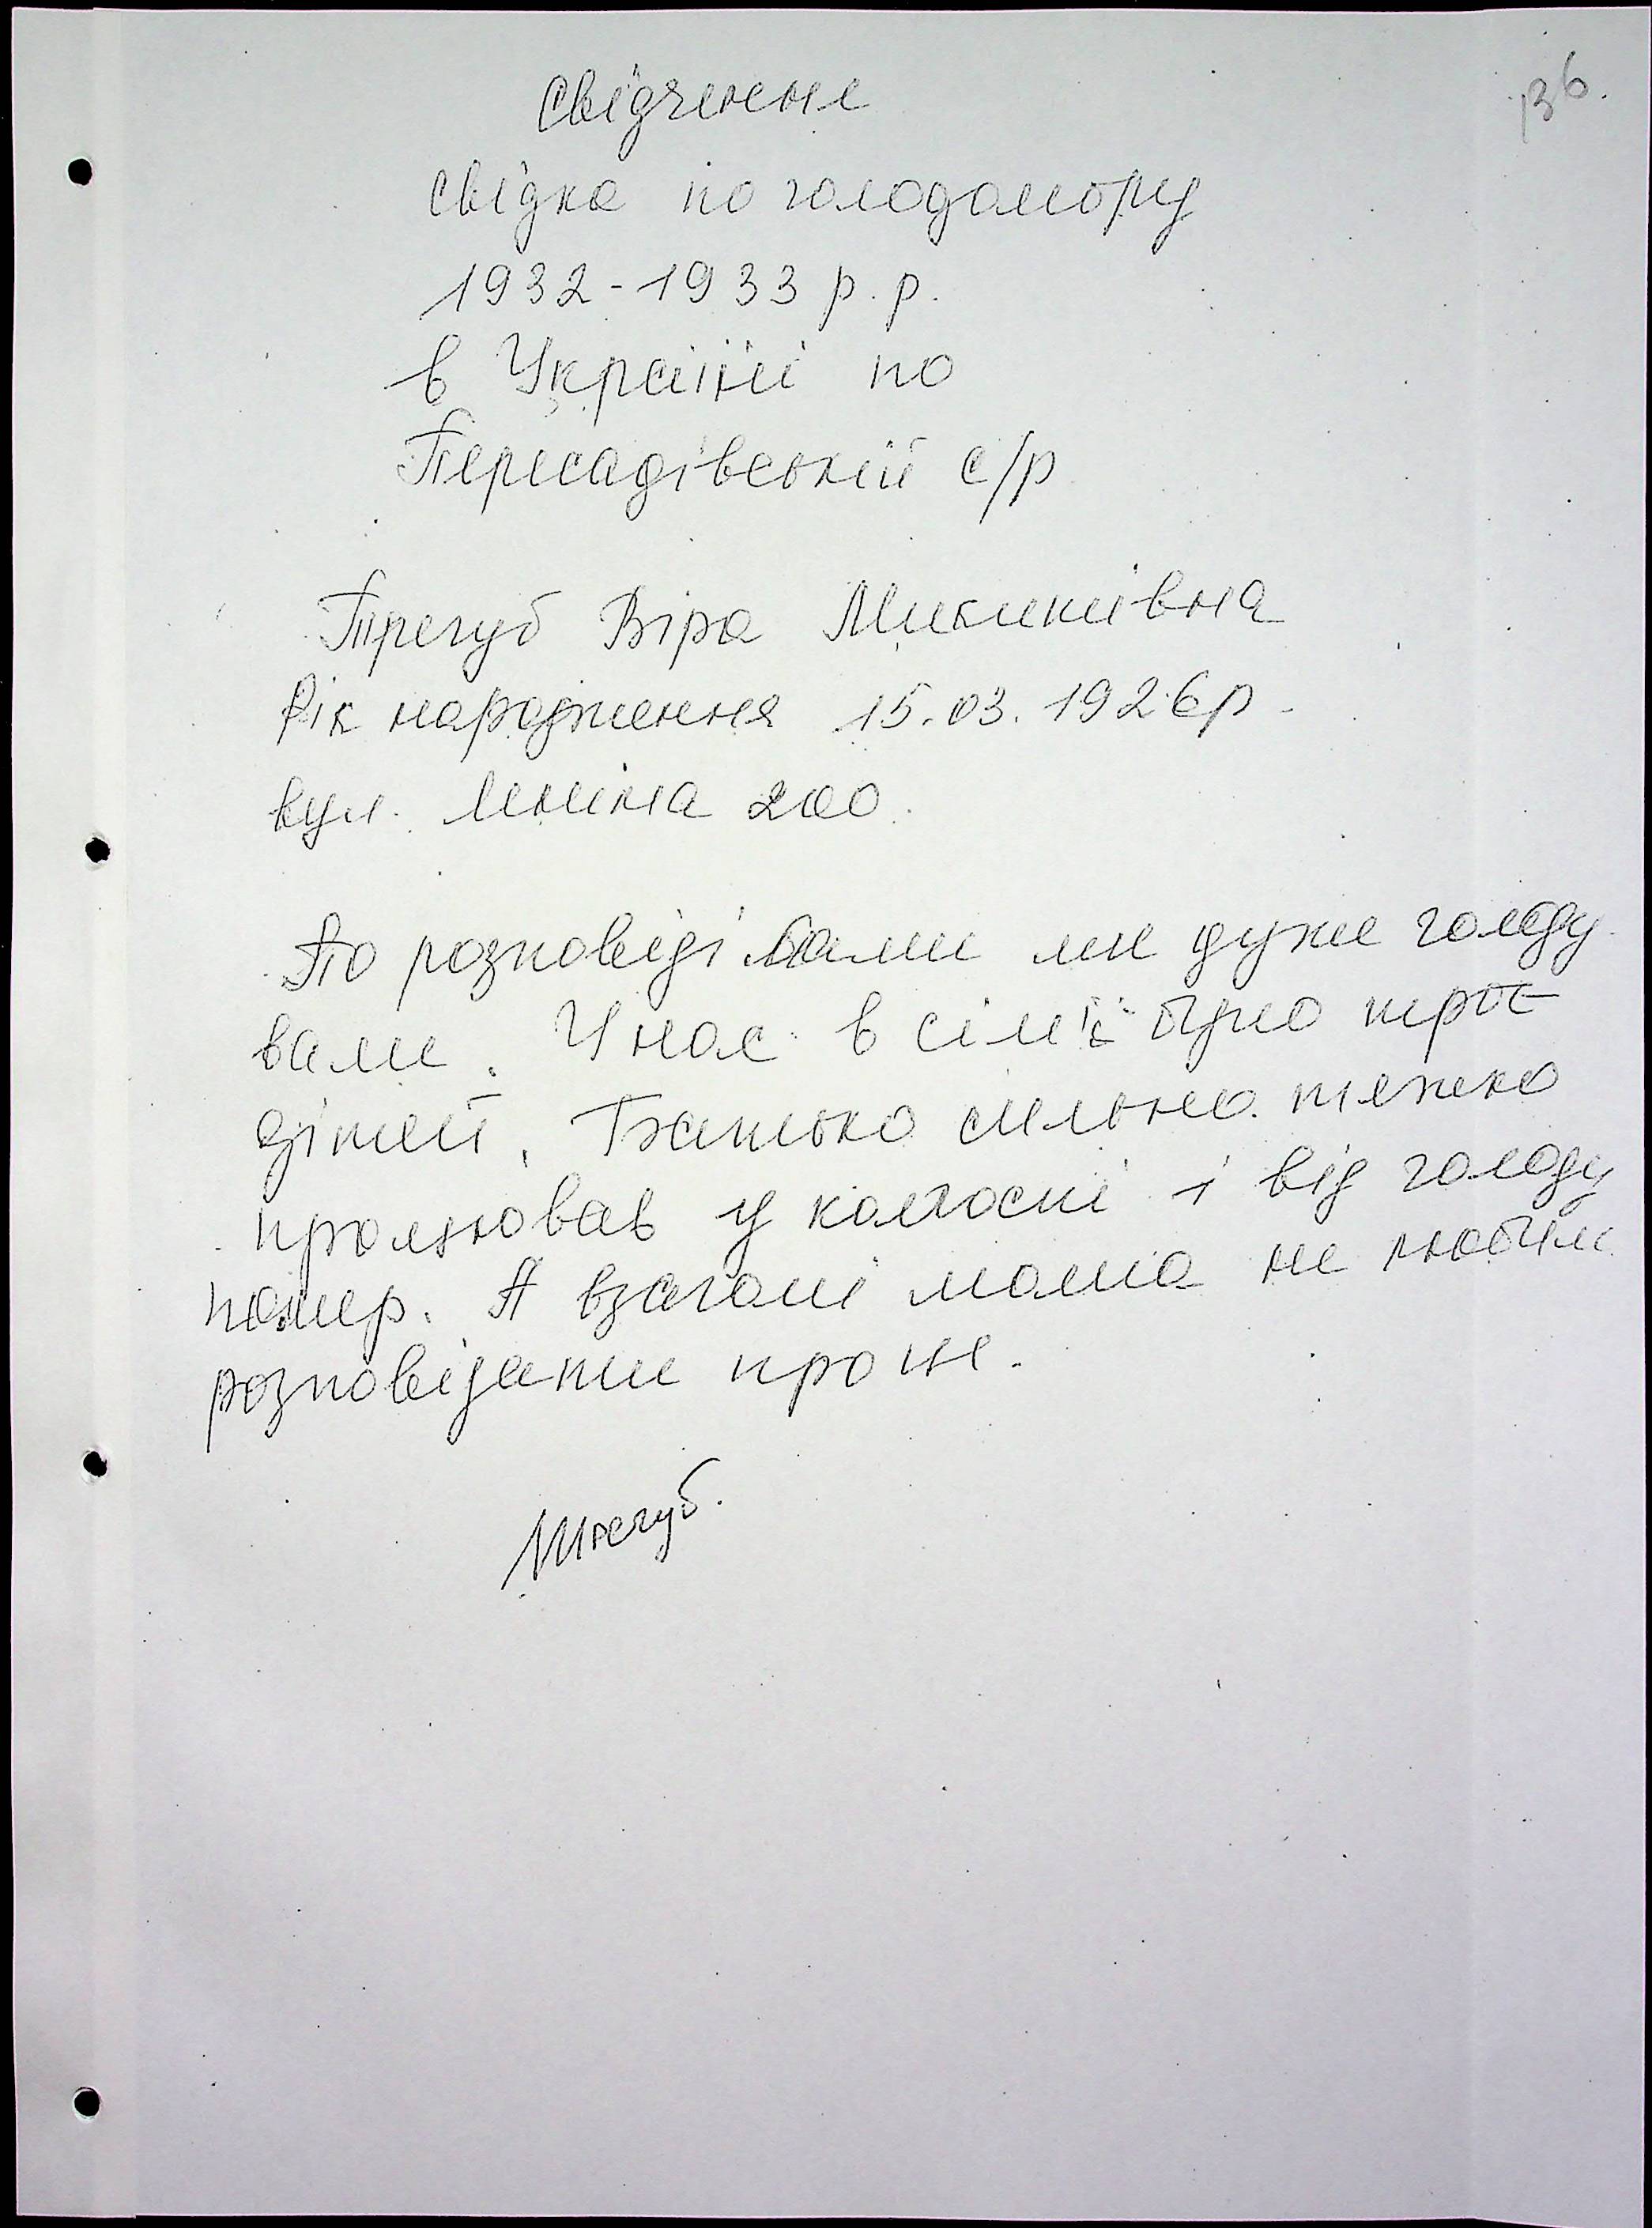 136.
Свідчення
свідка по голодомору
1932-1933 р.р.
в Україні по
Пересадівській с/р
Трегуб Віра
Рік народження 15.03.1926р.
вул. Леніна 200.
По розповіді мами ми дуже голоду
вали. У нас в сім'ї було троє
дітей. Батько сильно тяжко
працював у колгоспі і від голоду
помер. А взагалі мама не любила
розповідати про це.
Трегуб.